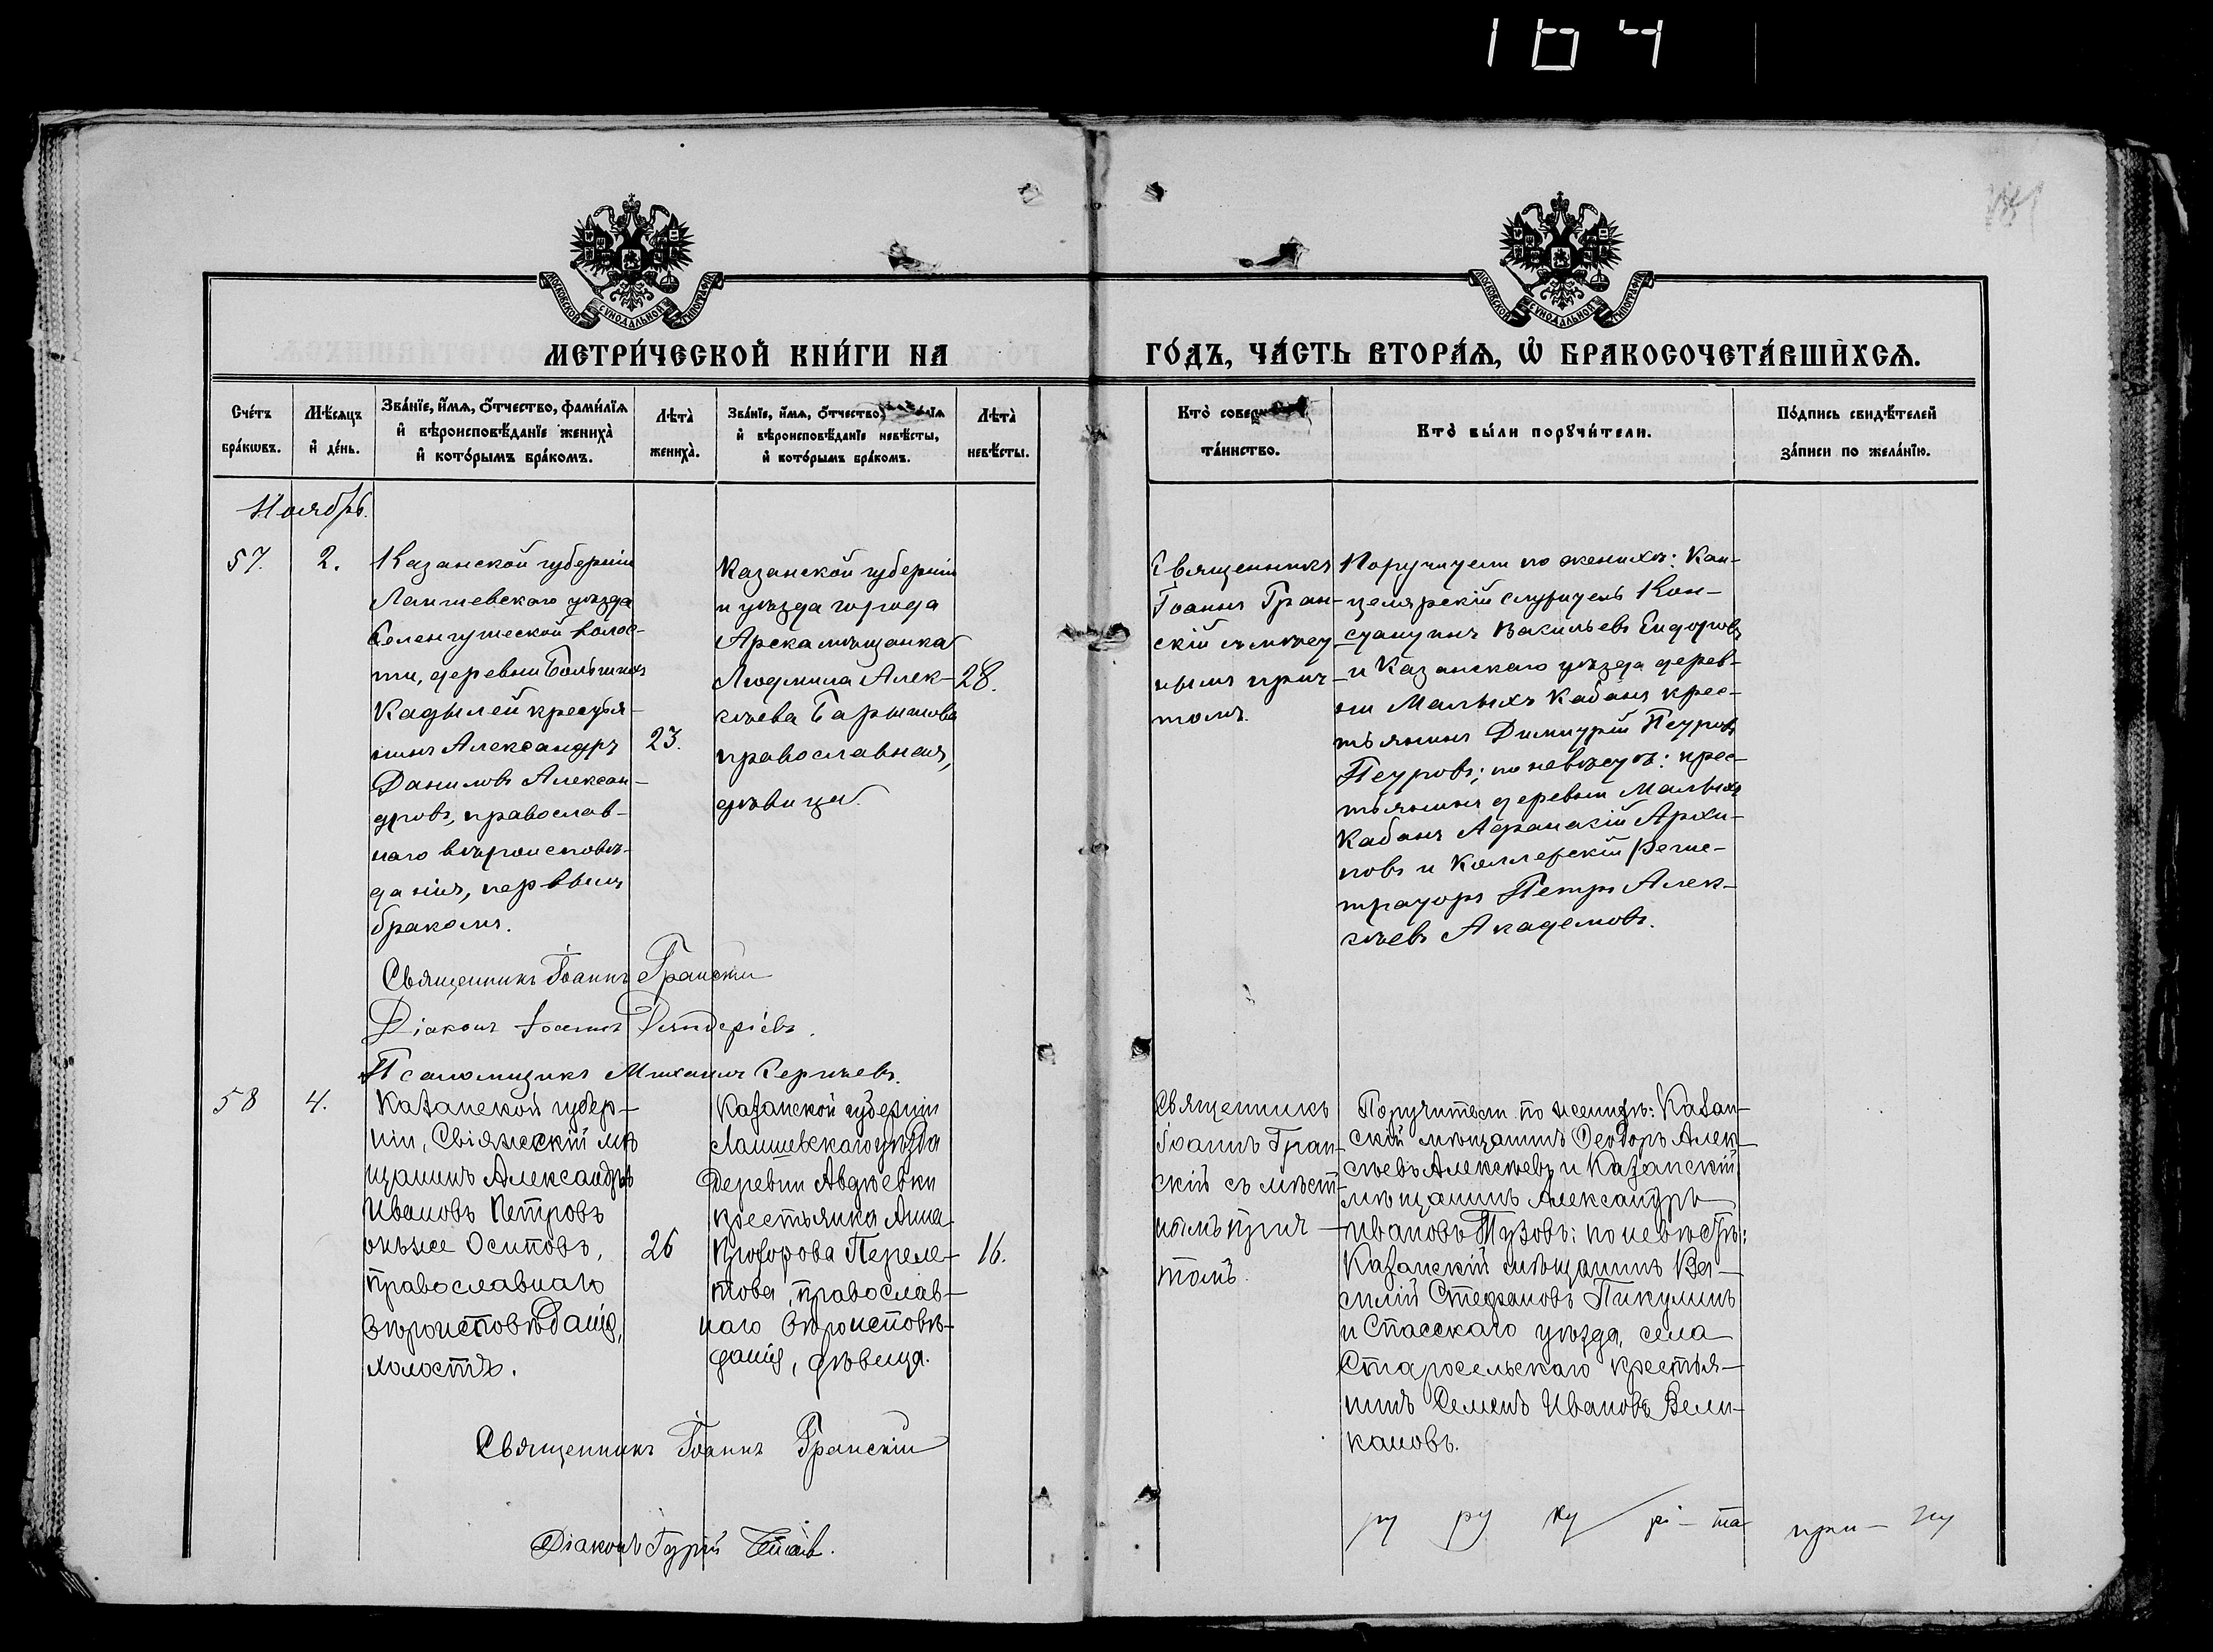 164
МОСКОВСКОЙ СѴНОДАЛЬНОЙ ТИПОГРАФІИ
МОСКОВСКОЙ СѴНОДАЛЬНОЙ ТИПОГРАФІИ
МЕТРИ́ЧЕСКОЙ КНИ́ГИ НА
ГО́ДЪ, ЧА́СТЬ ВТОРА́Ѧ, Ѡ҆ БРАКОСОЧЕТА́ВШИХСѦ.
Сче́тъ
бра́кѡвъ.
Мѣ́сѧцъ
и҆ де́нь.
Зва́нїе, и҆́мѧ, ѻ҆́тчество, фами́лїѧ
и҆ вѣроисповѣ́данїе жениха̀
и҆ кото́рымъ бра́комъ.
Лѣта̀
жениха̀.
Зва́нїе, и҆́мѧ, ѻ҆́тчество,
и҆ вѣроисповѣ́данїе невѣ́сты,
и҆ кото́рымъ бра́комъ.
Лѣта̀
невѣ́сты.
Кто̀
та́инство.
Кто̀ бы́ли порꙋчи́тели.
По́дпись свидѣ́телей
за́писи по жела́нїю.
Ноябрь.
57.
2.
Казанской губерніи
Лаишевскаго уѣзда
Селенгушеской волос-
ти, деревни Большихъ
Кадылей крестья-
нинъ Александръ
Даниловъ Алексан-
дровъ, православ-
наго вѣроисповѣ-
данія, первымъ
бракомъ.
23.
Казанской губерніи
и уѣзда города
Арска мѣщанка
Людмила Алек-
сѣева Барышова
православная,
дѣвица.
28.
Священникъ
Іоаннъ Гран-
скій съ мѣст
нымъ прич-
томъ.
Поручители по женихѣ: Кан-
целярскій служитель Кон-
стантинъ Васильевъ Ендоровъ
и Казанскаго уѣзда дерев-
ни Малыхъ Кабанъ крес-
тьянинъ Димитрій Петровъ
Петровъ; по невѣстѣ: крес-
тьянинъ деревни Малыхъ
Кабанъ Афанасій Архи-
повъ и Коллежскій Регис-
траторъ Петръ Алек-
сѣевъ Академовъ.
Священникъ Іоаннъ Гранскій
Діаконъ Іоаннъ
Псаломщикъ Михаилъ Сергѣевъ.
58
4.
Казанской губер-
ніи, Свіяжскій мѣ
щанинъ Александръ
Ивановъ Петровъ
онъже Осиповъ,
православнаго
вѣроисповѣданія,
холостъ.
26
Казанской губерніи
Лаишевскаго уѣзда
Деревни Авдѣевки
крестьянка Анна
Прохорова Переле-
това, православ-
наго вѣроисповѣ-
данія, дѣвица.
16.
Священникъ
Іоаннъ Гран-
скій съ мѣст-
нымъ прич-
томъ.
Поручители по женихѣ: Казан-
скій мѣщанинъ Ѳеодоръ Алек-
сѣевъ Алексѣевъ и Казанскій
мѣщанинъ Александръ
Ивановъ Тузовъ: по невѣстѣ:
Казанскій мѣщанинъ Ва-
силій Стефановъ Пикулинъ
и Спасскаго уѣзда, села
Старосельскаго крестья-
нинъ Семенъ Ивановъ Вели-
кановъ.
Священникъ Іоаннъ Гранскій
Діаконъ Гурій
ру ру ку рі-та при-чу